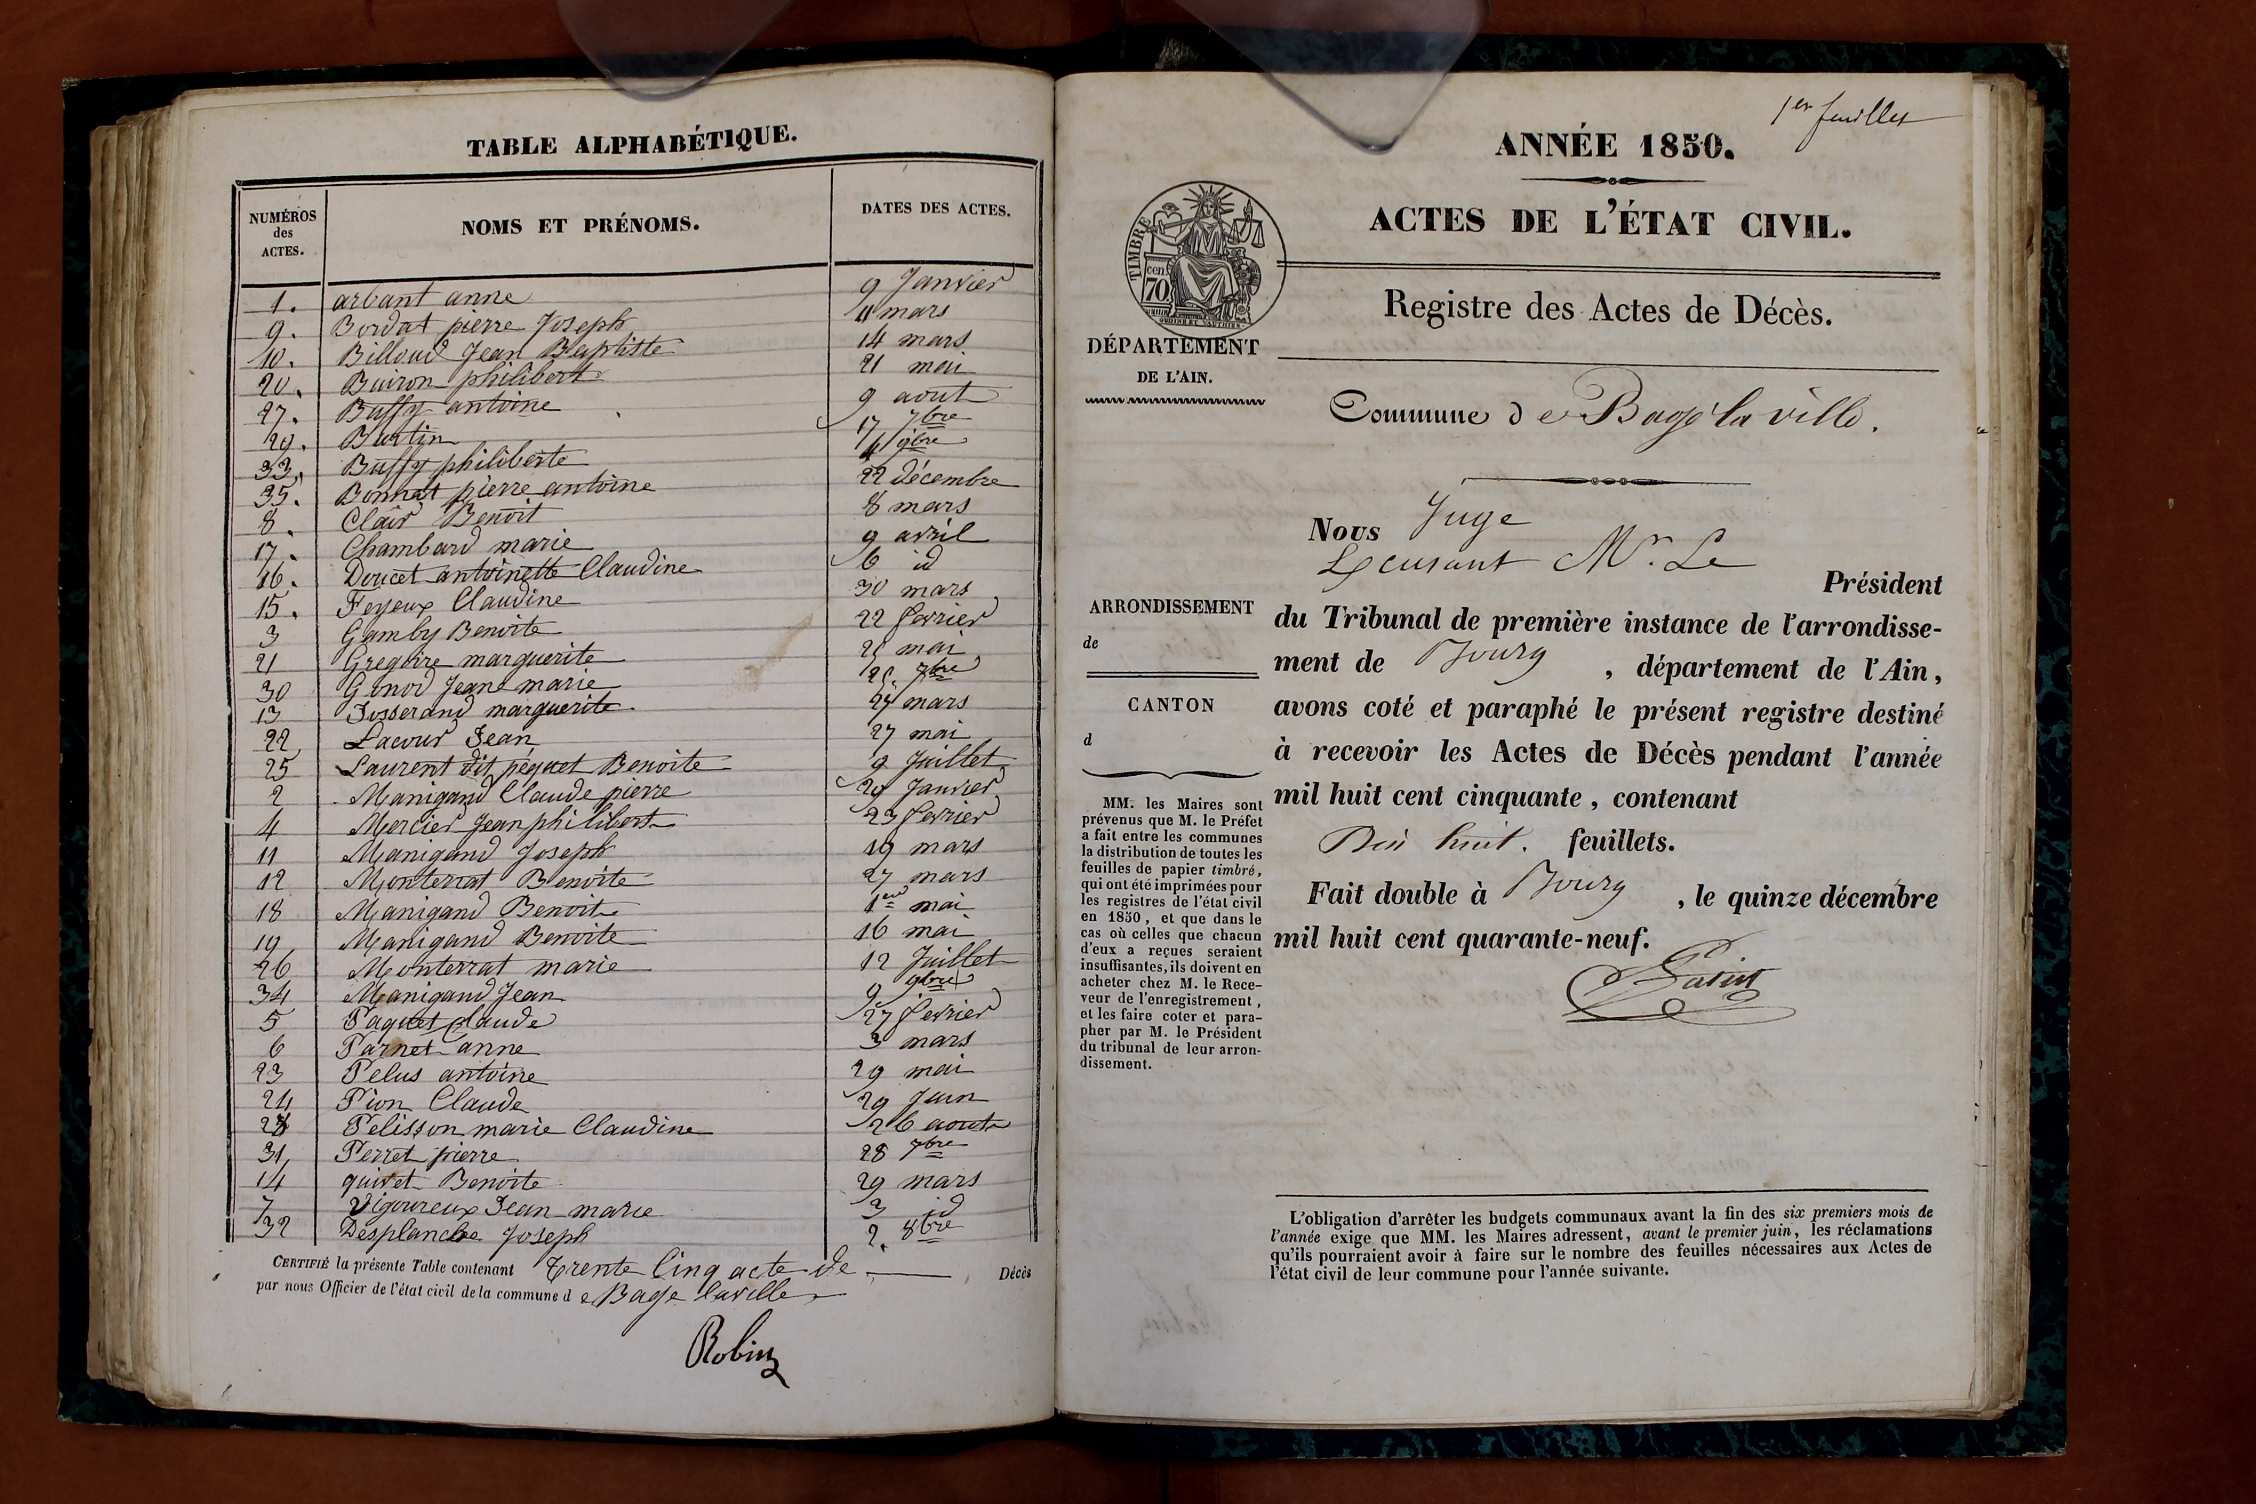 TABLE ALPHABÉTIQUE.
NUMÉROS des ACTES. NOMS ET PRÉNOMS. DATES DES ACTES.
1. arbant anne 9 Janvier
9. Bordat pierre Joseph 11 mars
10. Billoud Jean Baptiste 14 mars
20. Buiron philibert 21 mai
27. Buffy antoine 9 aout
29. Burtin 17 7bre
33. Buffy philiberte 4 9bre
35. Bonnat pierre antoine 22 décembre
8. Clair Benoit 8 mars
17. Chambard marie 9 avril
16. Doucet antoinette Claudine 6 id
15. Feyeux Claudine 30 mars
3 Gamby Benoite 22 fevrier
21 Gregoire marguerite 25 mai
30 Gonod Jeane marie 25. 7bre
13 Josserand marguerite 27 mars
22 Lacour Jean 27 mai
25 Laurent dit péquet Benoite 9 Juillet
2 Manigand Claude pierre 29 Janvier
4 Mercier Jean philibert 23 fevrier
11 Manigand Joseph 19 mars
12 Monterrat Benoite 27 mars
18 Manigand Benoit 1er mai
19 Manigand Benoite 16 mai
26 Monterrat marie 12 Juillet
34 Manigand Jean 9 9bre
5 Paquet claude 27 fevrier
6 Parnet anne 3 mars
23 Pelus antoine 29 mai
24 Pion Claude 29 Juin
28 Pelisson marie Claudine 26 aout
31 Perret pierre 28 7bre
14 quivet Benoite 29 mars
7 Vigoureux Jean marie 3 id
32 Desplanche Joseph 2. 8bre
CERTIFIÉ la présente Table contenant Trente Cinq acte de Décès
par nous Officier de l'état civil de la commune d e Bage laville
Robin
1er feuillet
ANNÉE 1850.
ACTES DE L'ÉTAT CIVIL.
TIMBRE
70 cen
Registre des Actes de Décès.
DÉPARTEMENT
DE L'AIN.
Commune d e Bagé la ville.
Nous Juge
Excusant Mr. Le
Président
du Tribunal de première instance de l'arrondisse-
ment de Bourg , département de l'Ain,
avons coté et paraphé le présent registre destiné
à recevoir les Actes de Décès pendant l'année
mil huit cent cinquante , contenant
Dix huit. feuillets.
Fait double à Bourg , le quinze décembre
mil huit cent quarante-neuf.
ARRONDISSEMENT
de
CANTON
d
MM. les Maires sont
prévenus que M. le Préfet
a fait entre les communes
la distribution de toutes les
feuilles de papier timbré,
qui ont été imprimées pour
les registres de l'état civil
en 1850, et que dans le
cas où celles que chacun
d'eux a reçues seraient
insuffisantes, ils doivent en
acheter chez M. le Rece-
veur de l'enregistrement,
et les faire coter et para-
pher par M. le Président
du tribunal de leur arron-
dissement.
L'obligation d'arrêter les budgets communaux avant la fin des six premiers mois de
l'année exige que MM. les Maires adressent, avant le premier juin, les réclamations
qu'ils pourraient avoir à faire sur le nombre des feuilles nécessaires aux Actes de
l'état civil de leur commune pour l'année suivante.